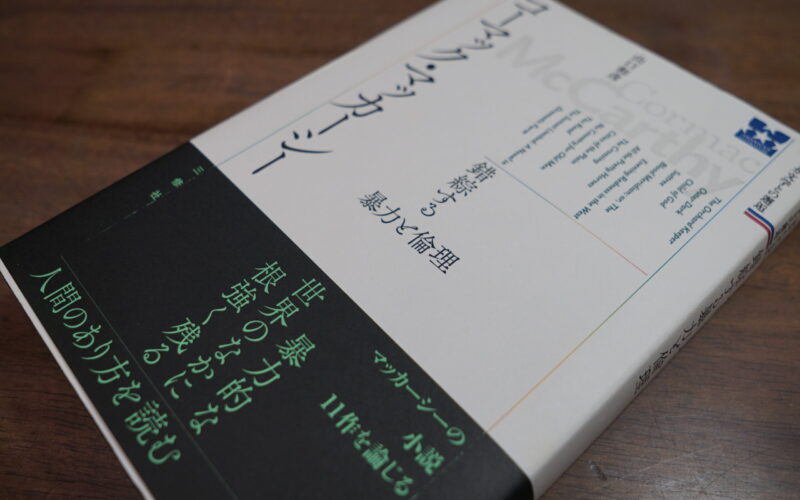 コーマック・マッカーシー
錯綜する
暴力と倫理
Cormac
McCarthy
The Orchard Keeper
Outer Dark
Child of God
Suttree
Blood Meridian or The
Evening Redness in the West
All the Pretty Horses
The Crossing
Cities of the Plain
No Country for Old Men
The Road
The Sunset Limited: A Novel in
Dramatic Form
マッカーシーの
小説
11作を論じる
暴力的な
世界のなかに
根強く残る
人間のあり方を読む
三修社